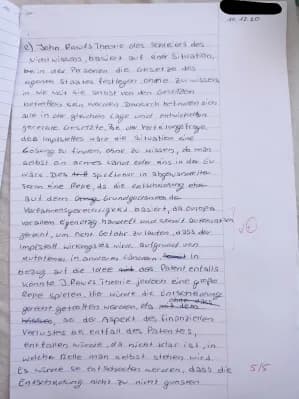 10.12.20
e) John Rawls Theorie des Schleiers des
Nichtwissens, basiert auf einer Situation,
bei der Personen die Gesetze des
eigenen Staates festlegen, ohne zu wissen
in wie weit sie selbst von den Gesetzen
betroffen sein werden. Dadurch befinden sich
alle in der gleichen Lage und entwickeln
gerechte Gesetze. In der Verteilungsfrage
des Impfstoffes wäre die Situation eine
Lösung zu finden, ohne zu wissen, ob man
selbst ein armes Land oder eins in der EU
wäre. Dies spielt hier in abgewandelter
Form eine Rolle, da die Entscheidung eher
auf dem Grundgedanken der
Verfahrensgerechtigkeit basiert, da Europa
vor allem eigennützig handelt und
gerecht, um nicht Gefahr zu laufen, dass der
Impfstoff wirkungslos wird, aufgrund von
Mutationen in anderen Ländern. In
bezug auf die Idee des Patententfalls
könnte J. Rawls Theorie jedoch eine große
Rolle spielen. Hier würde die Entscheidung
gerecht getroffen werden,
so der Aspekt des finanziellen
Verlustes bei Entfall des Patentes,
entfallen würde, da nicht klar ist, in
welcher Rolle man selbst stehen wird.
Es würde so entschieden werden, dass die
Entscheidung nicht zu nicht gunsten
5/5